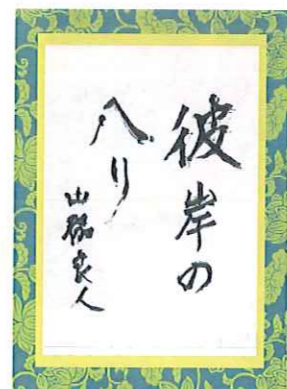 彼岸の
入り
山脇良人